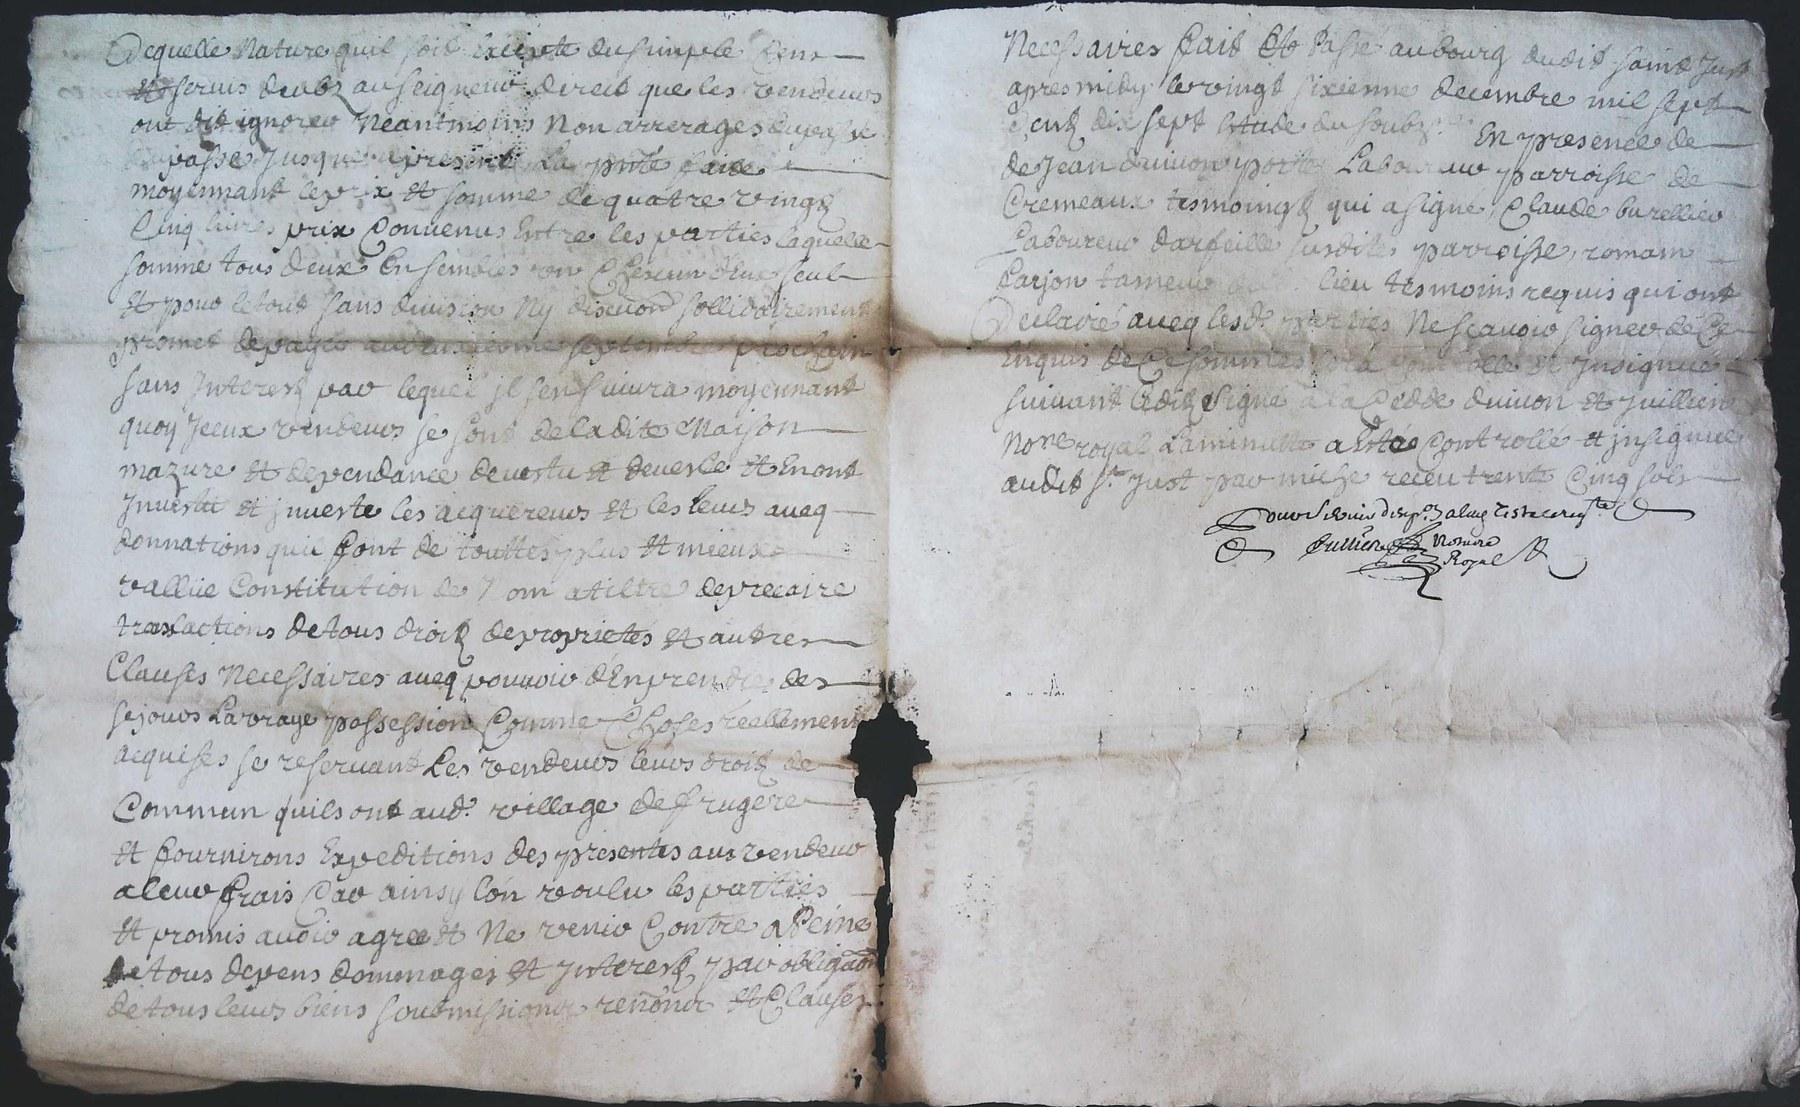 Dequelle Nature quil soit Exempte du simple Cens
et servis deubz au seigneur direct que les vendeurs
ont dit ignorer Neantmoins Non arrerages
du passé Jusque a present La pnte faite
moyennant le prix et somme de quatre vingt
Cinq livres prix Convenus Entre les parties laquelle
somme tous deux Ensembles ou Chascun d'Eux seul
et pour le tout sans division Ny discuon sollidairement
promet de payer septembre prochain
sans Interest par lequel jl sensuivra moyennant
quoy Jceux vendeurs se sont de la dite Maison
mazure et dependance devestu et deveste et En ont
Jnvestu et jnveste les acquereurs et les leurs aveq
donnations quil font de touttes plus et mieux
vallue Constitution de Nom a tiltre de precaire
translactions de tous droit de proprietés et autres
Clauses Necessaires aveq pouvoir d'En prendre des
se jours La vraye possession Comme Choses réellement
acquises se reservant Les vendeurs leurs droit de
Commun quils ont aud. village de frugere
et fournirons Expeditions des presentes aux vendeur
a leur frais Car ainsy lon voulu les parties
et promis avoir agree et Ne venir Contre a Peine
de tous depens dommages et Interest par obligaon
de tous leurs biens soubmissions renons et Clauses
Necessaires fait et Passé au bourg dudit saint Just
apres midy le vingt sixienne decembre mil sept
Cent dix sept Estude du soubz. En presence de
de Jean Laboureur parroisse de
Cremeaux tesmoingt qui a signe, Claude burellier
Laboureur darfeille susdite parroisse, romain
Larjon tameur lieu tesmoins requis qui ont
Declairé aveq lesd. parties Ne scavoir signer de Ce
Enquis de Ce sommes sera Controlle et Jnsignué
suivant lEdit Signe a la Cedde et Jullien
No.re royal La minutte a Esté Controllé et jnsignue
audit St Just par miche receu trente Cinq sols
Jullien Nottaire
Royal